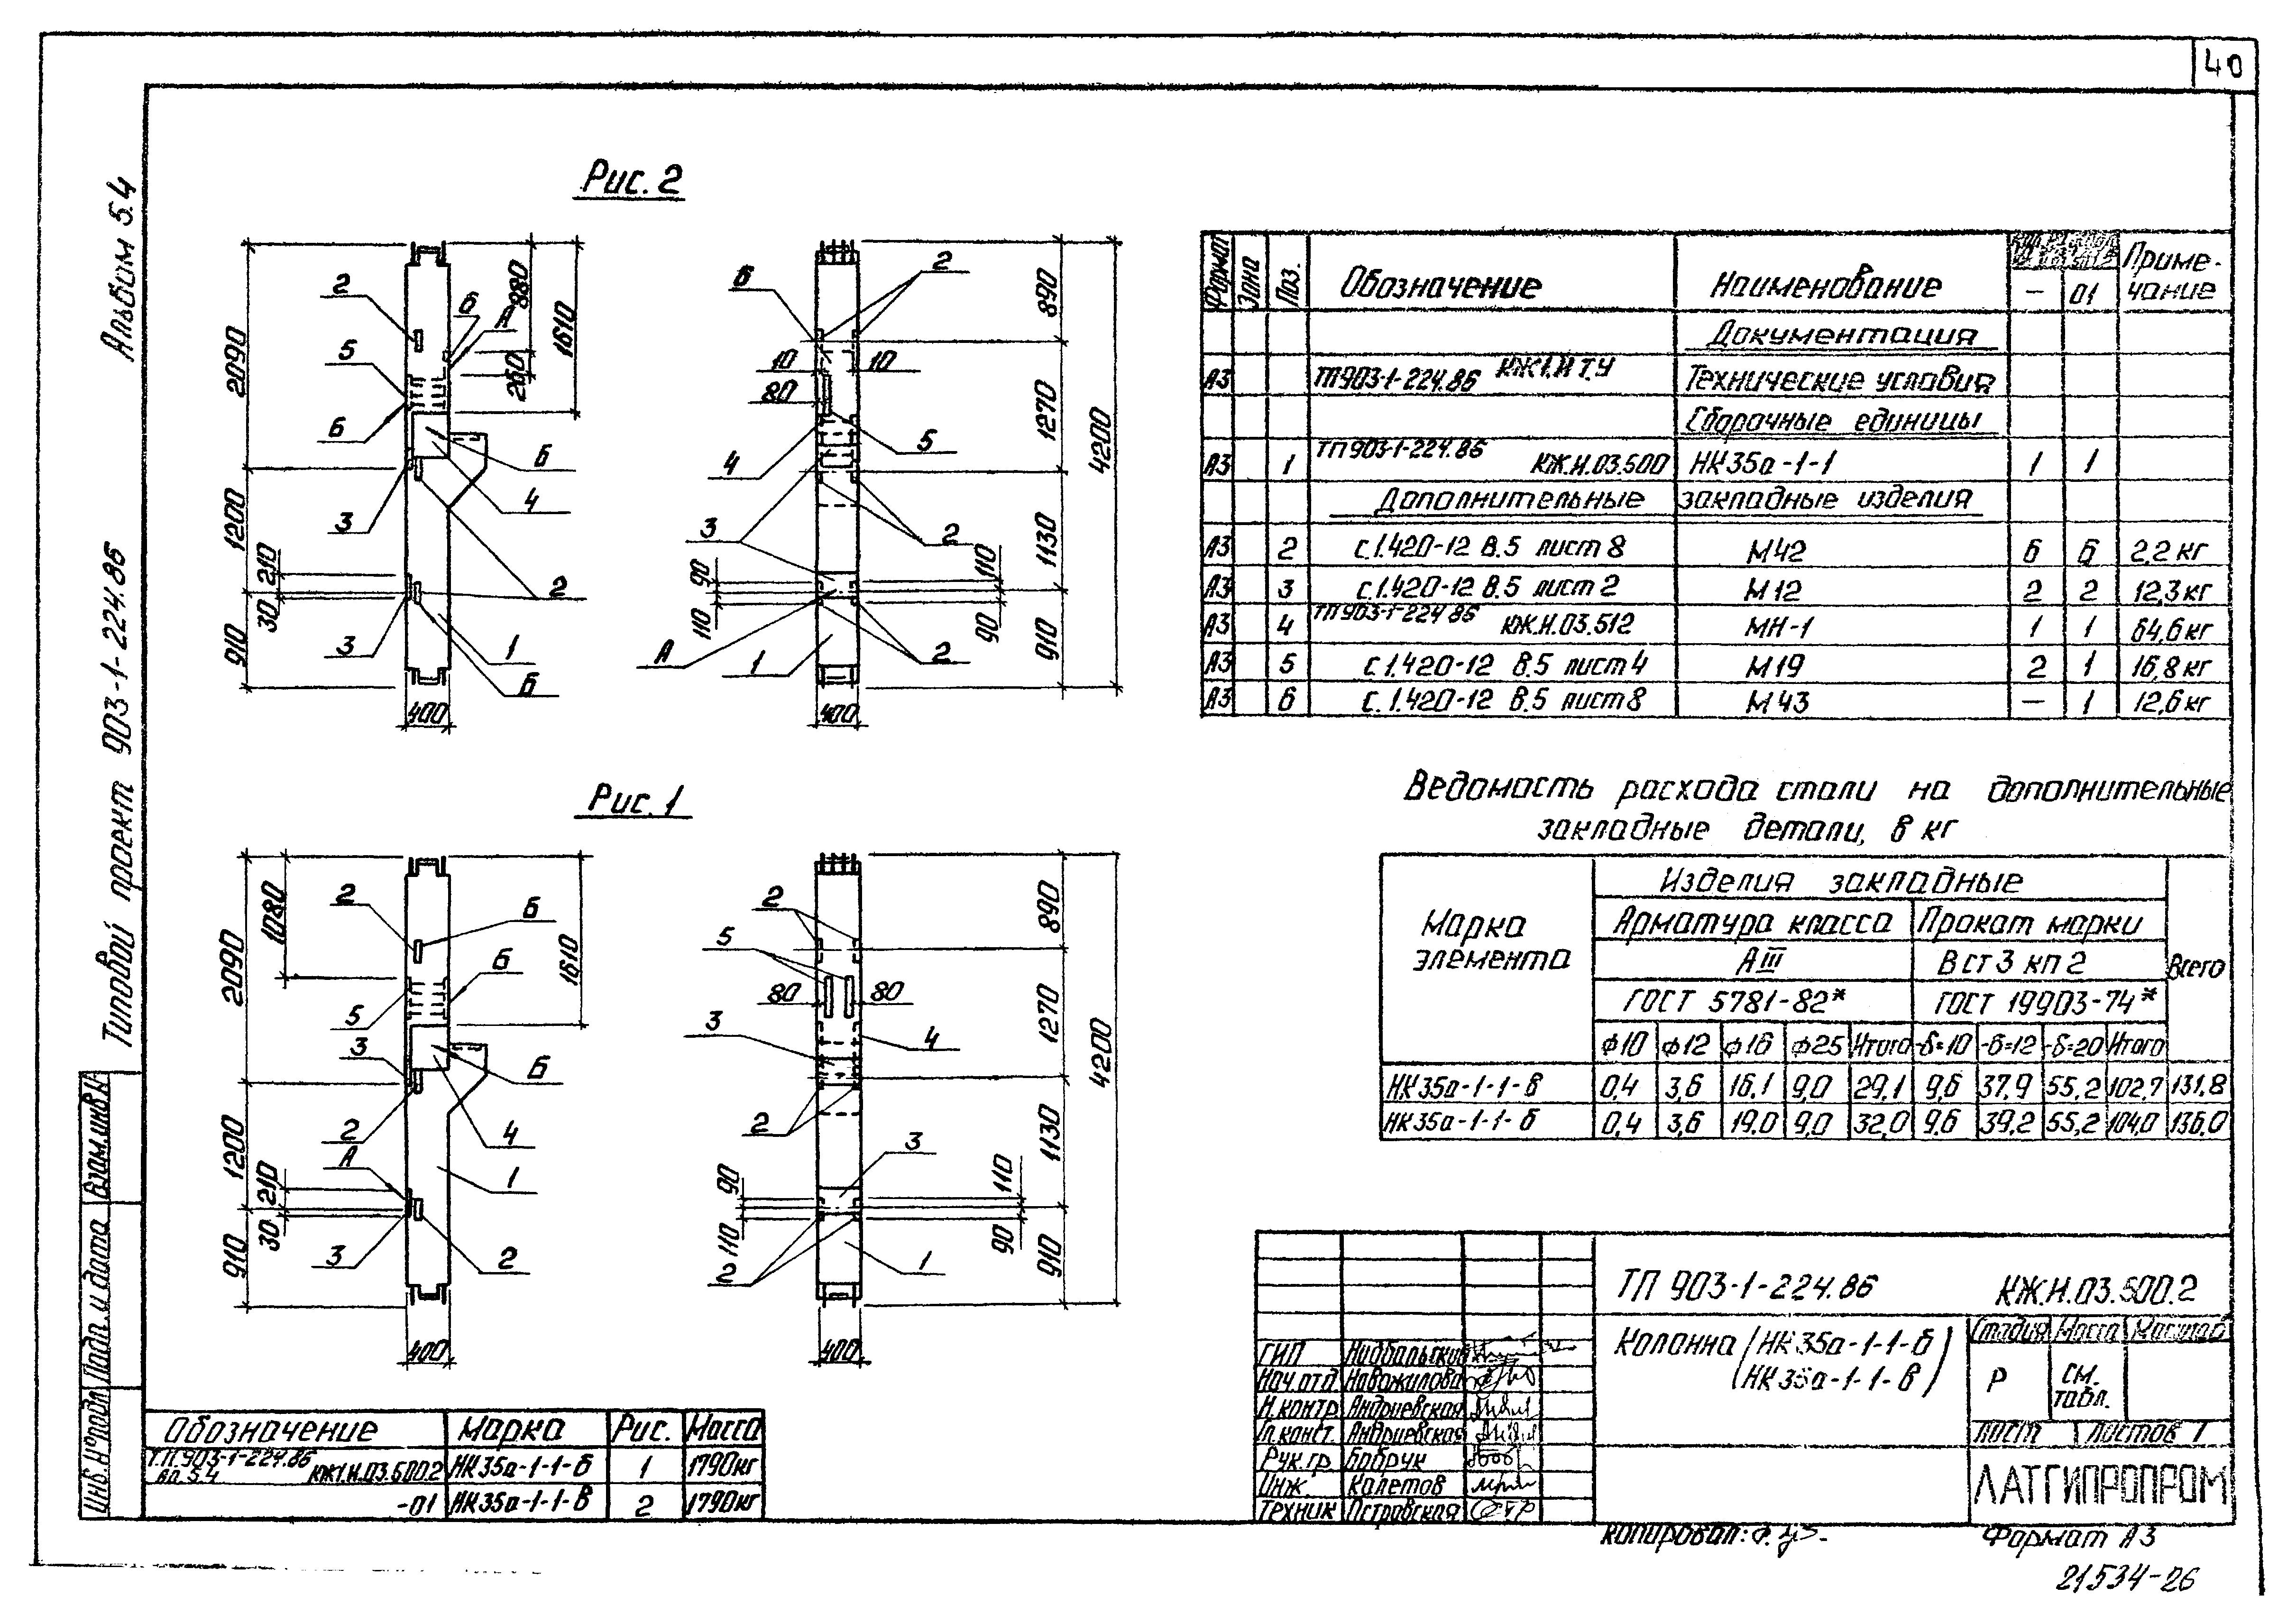 40
Альбом 5.4
Типовой проект 903-1-224.86
Рис. 2
2090
1200
910
210
30
400
880
260
1610
2
5
Б
3
6
А
Б
4
2
1
Б
Б
2
10
10
80
4
5
3
2
90
110
А
1
2
110
90
400
890
1270
1130
910
4200
Рис. 1
2090
1200
910
1080
210
30
400
1610
2
5
3
2
А
3
Б
Б
Б
4
1
2
2
5
80
80
3
4
2
3
90
110
2
1
110
90
400
890
1270
1130
910
4200
Формат Зона Поз. Обозначение Наименование — 01 Приме-
чание
Документация
А3 ТП903-1-224.86 КЖ1.И ТУ Технические условия
Сборочные единицы
А3 1 ТП 903-1-224.86 КЖ.И.03.500 НК35а-1-1 1 1
Дополнительные закладные изделия
А3 2 с.1.420-12 В.5 лист 8 М42 6 6 2,2 кг
А3 3 с.1.420-12 В.5 лист 2 М12 2 2 12,3 кг
А3 4 ТП 903-1-224.86 КЖ.И.03.512 МН-1 1 1 64,6 кг
А3 5 с.1.420-12 В.5 лист 4 М19 2 1 16,8 кг
А3 6 с.1.420-12 В.5 лист 8 М43 — 1 12,6 кг
Ведомость расхода стали на дополнительные
закладные детали, в кг
Марка
элемента
Изделия закладные
Арматура класса Прокат марки
АIII В ст 3 кп 2 Всего
ГОСТ 5781-82* ГОСТ 19903-74*
ф10 ф12 ф16 ф25 Итого -δ=10 -δ=12 -δ=20 Итого
НК35а-1-1-в 0,4 3,6 16,1 9,0 29,1 9,6 37,9 55,2 102,7 131,8
НК35а-1-1-б 0,4 3,6 19,0 9,0 32,0 9,6 39,2 55,2 104,0 136,0
ТП 903-1-224.86 КЖ.И.03.500.2
Колонна (НК35а-1-1-б)
(НК35а-1-1-в)
Стадия Масса Масштаб
Р см.
табл.
Лист Листов 1
ЛАТГИПРОПРОМ
ГИП Нидбальский
Нач.отд Новожилова
Н.контр Андриевская
Гл.конст. Андриевская
Рук.гр. Бобрук
Инж. Калетов
Техник Петровская
Обозначение Марка Рис. Масса
Т.П.903-1-224.86
ал.5.4 КЖ1.И.03.500.2 НК35а-1-1-б 1 1790кг
-01 НК35а-1-1-в 2 1790кг
Взам.инв.№
Подп. и дата
Инв.№подл
Копировал:
Формат А3
21534-26